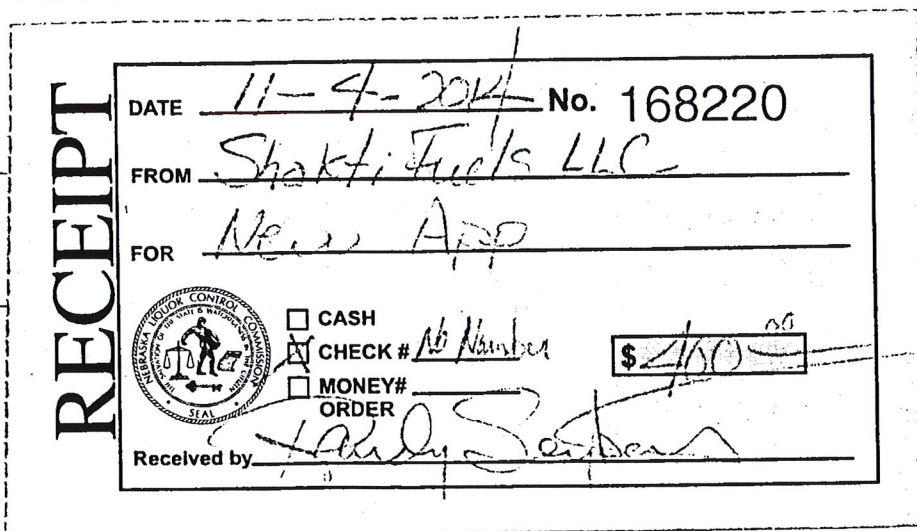 RECEIPT
DATE 11-4-2014 No. 168220
FROM Shakti Fuels LLC
FOR New App
NEBRASKA LIQUOR CONTROL COMMISSION
SEAL
CASH
CHECK # No Number
$ 400.00
MONEY#
ORDER
Received by